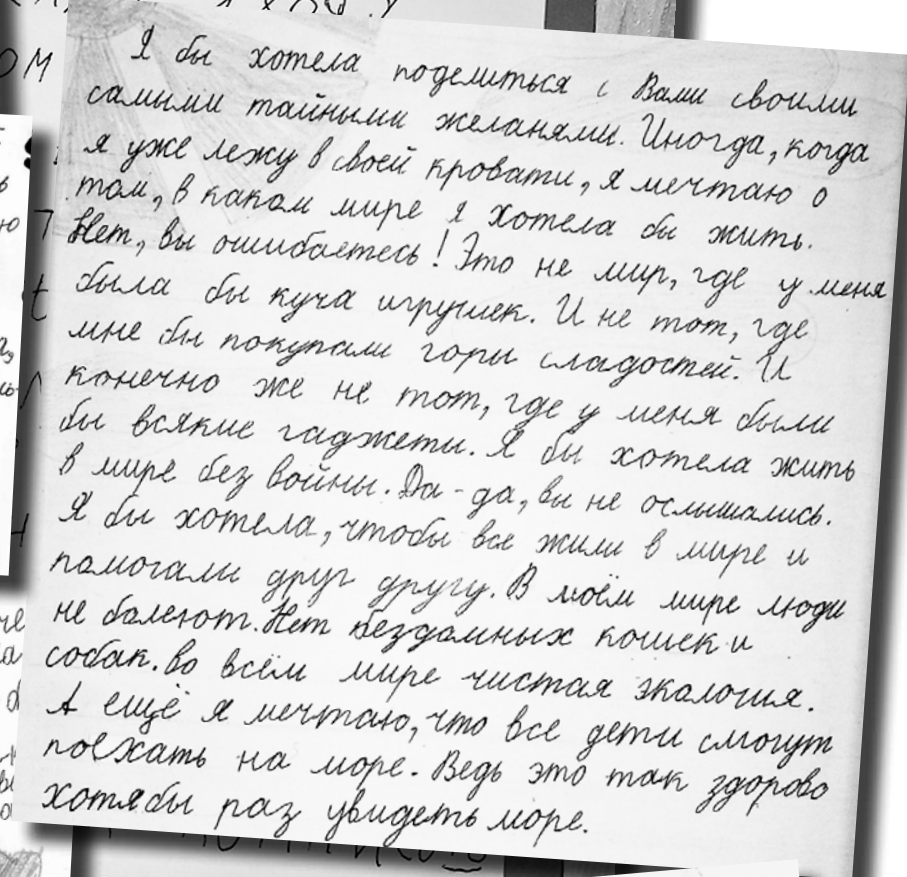 Я бы хотела поделиться с Вами своими
самыми тайными желанями. Иногда, когда
я уже лежу в своей кровати, я мечтаю о
том, в каком мире я хотела бы жить.
Нет, вы ошибаетесь! Это не мир, где у меня
была бы куча игрушек. И не тот, где
мне бы покупали горы сладостей. И
конечно же не тот, где у меня были
бы всякие гаджеты. Я бы хотела жить
в мире без войны. Да-да, вы не ослышались.
Я бы хотела, чтобы все жили в мире и
помогали друг другу. В моём мире люди
не болеют. Нет бездомных кошек и
собак. Во всём мире чистая экология.
А ещё я мечтаю, что все дети смогут
поехать на море. Ведь это так здорово
хотябы раз увидеть море.